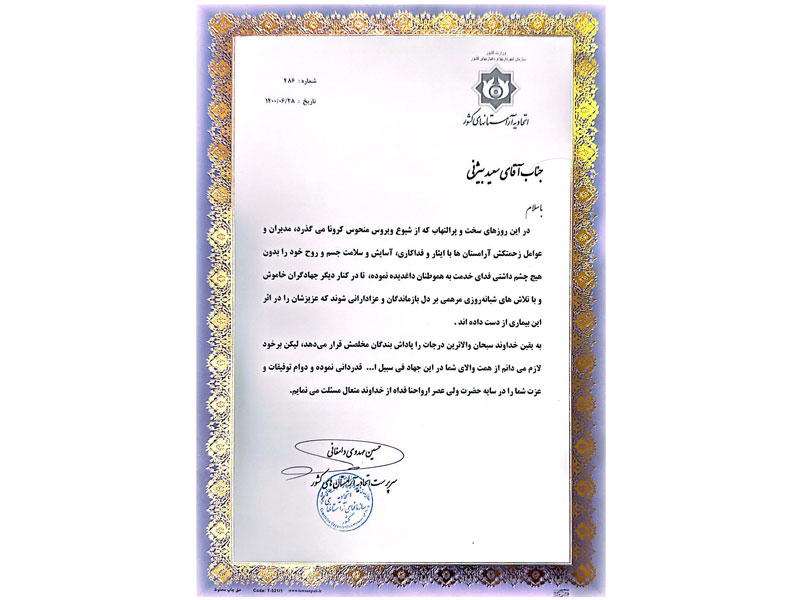 وزارت کشور
سازمان شهرداریها و دهیاریهای کشور
اتحادیه آرامستانهای کشور
شماره : ۴۸۶
تاریخ : ۱۴۰۰/۰۶/۲۸
جناب آقای سعید بیژنی
با سلام
در این روزهای سخت و پرالتهاب که از شیوع ویروس منحوس کرونا می گذرد، مدیران و
عوامل زحمتکش آرامستان ها با ایثار و فداکاری، آسایش و سلامت جسم و روح خود را بدون
هیچ چشم داشتی فدای خدمت به هموطنان داغدیده نموده، تا در کنار دیگر جهادگران خاموش
و با تلاش های شبانه‌روزی مرهمی بر دل بازماندگان و عزادارانی شوند که عزیزشان را در اثر
این بیماری از دست داده اند .
به یقین خداوند سبحان والاترین درجات را پاداش بندگان مخلصش قرار می‌دهد، لیکن برخود
لازم می دانم از همت والای شما در این جهاد فی سبیل ا... قدردانی نموده و دوام توفیقات و
عزت شما را در سایه حضرت ولی عصر ارواحنا فداه از خداوند متعال مسئلت می نمایم.
حسین مهدوی دامغانی
سرپرست اتحادیه آرامستان های کشور
حق چاپ محفوظ Code: T-521/1